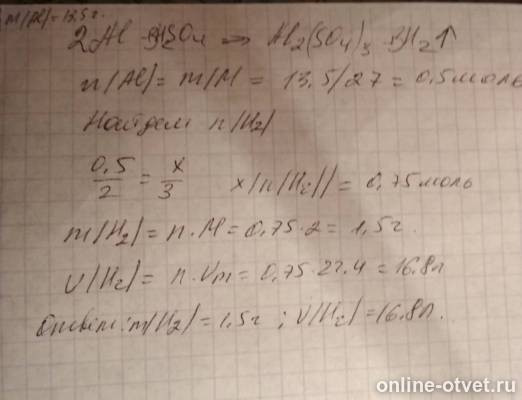 m(Al)=13,5г.
2Al + 3H2SO4 => Al2(SO4)3 + 3H2↑
n(Al)= m/M = 13.5/27 = 0.5моль
Найдем n(H2)
0,5/2 = x/3 x(n(H2)) = 0,75моль
m(H2)= n·M=0,75·2= 1,5г.
V(H2)= n·Vm=0,75·22.4=16.8л
Ответ: m(H2)=1,5г ; V(H2)=16.8л.
online-otvet.ru